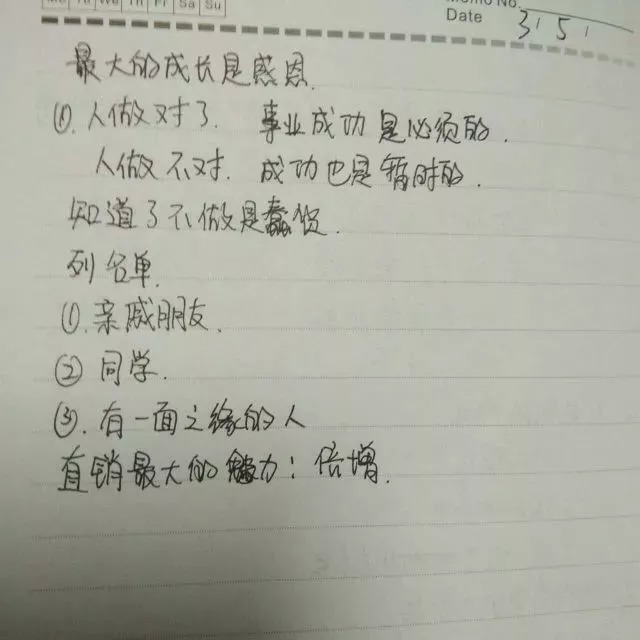 Mo Tu We Th Fr Sa Su
Memo No.
Date 3 / 5 /
最大的成长是感恩.
①. 人做对了. 事业成功是必须的.
人做不对. 成功也是暂时的.
知道了不做是蠢货.
列名单.
①. 亲戚朋友.
② 同学.
③. 有一面之缘的人
直销最大的魅力: 倍增.